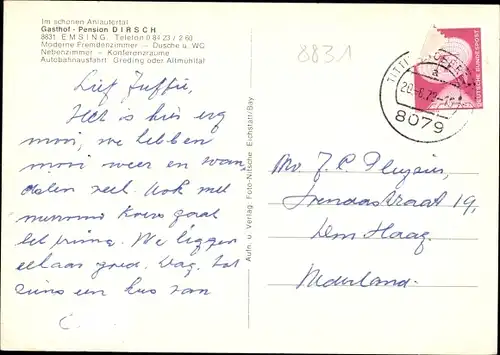 Im schönen Anlautertal
Gasthof - Pension DIRSCH
8831 EMSING, Telefon 0 84 23 / 2 60
Moderne Fremdenzimmer — Dusche u. WC
Nebenzimmer — Konferenzräume
Autobahnausfahrt Greding oder Altmühltal
8831
Lief
Het is hier erg
mooi, we hebben
mooi weer en wan
delen veel. Ook met
gaat
het prima. We liggen
elkaar goed. Dag, tot
ziens een kus van
C.
Aufn. u. Verlag: Foto-Nitsche, Eichstätt/Bay
DEUTSCHE BUNDESPOST
a
8079
Mv. J.C.
19,
Den Haag.
Nederland.